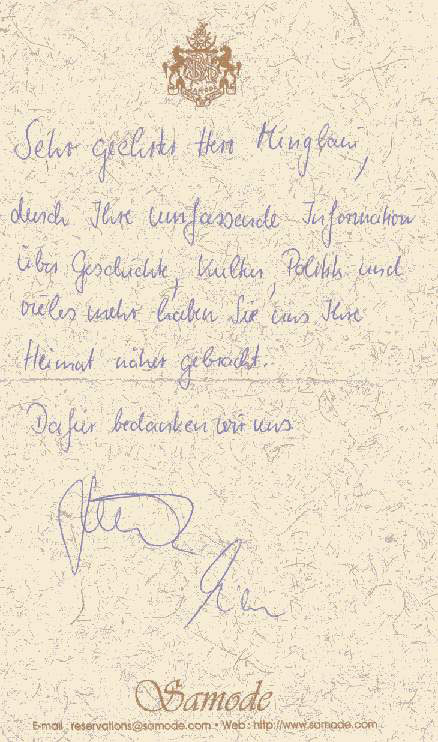 Sehr geehrter Herr
durch Ihre umfassende Information
über Geschichte, Kultur, Politik und
vieles mehr haben Sie uns Ihre
Heimat näher gebracht.
Dafür bedanken wir uns
Samode
E-mail : reservations@samode.com • Web : http://www.samode.com